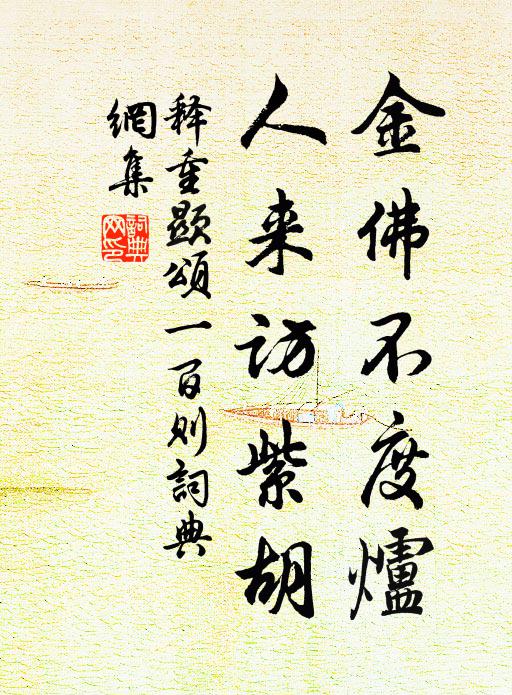 金佛不度爐
人来訪紫胡
释重顯頌一百则詞典
網集
詞典
网印